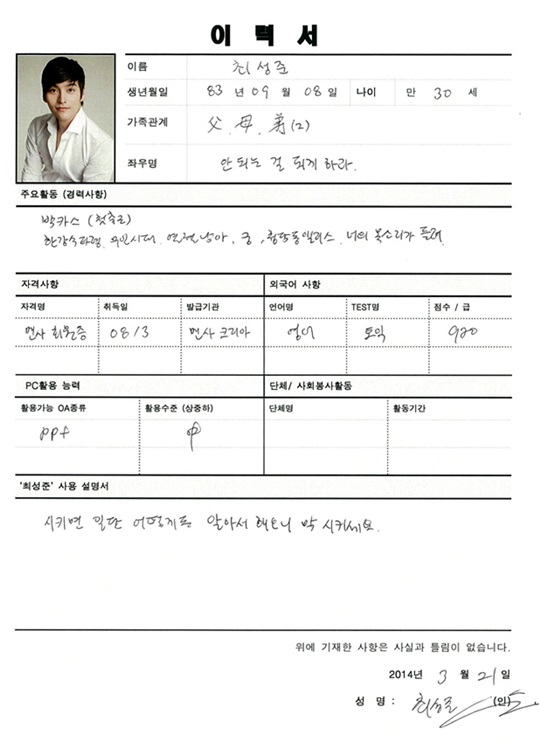 이 력 서
이름 최성준
생년월일 83 년 09 월 08 일 나이 만 30 세
가족관계 父, 母, 弟(2)
좌우명 안 되는 걸 되게 하라.
주요활동 (경력사항)
박카스 (첫출연)
한강수타령, 무인시대, 연개소문, 궁, 청담동앨리스, 너의 목소리가 들려
자격사항 외국어 사항
자격명 취득일 발급기관 언어명 TEST명 점수 / 급
면사 회원증 08 / 3 면사 코리아 영어 토익 920
PC활용 능력 단체/ 사회봉사활동
활용가능 OA종류 활용수준 (상중하) 단체명 활동기간
ppt 中
'최성준' 사용 설명서
시키면 일단 어떻게든 알아서 해오니 막 시키세요.
위에 기재한 사항은 사실과 틀림이 없습니다.
2014년 3 월 21 일
성 명 : 최성준 (인)